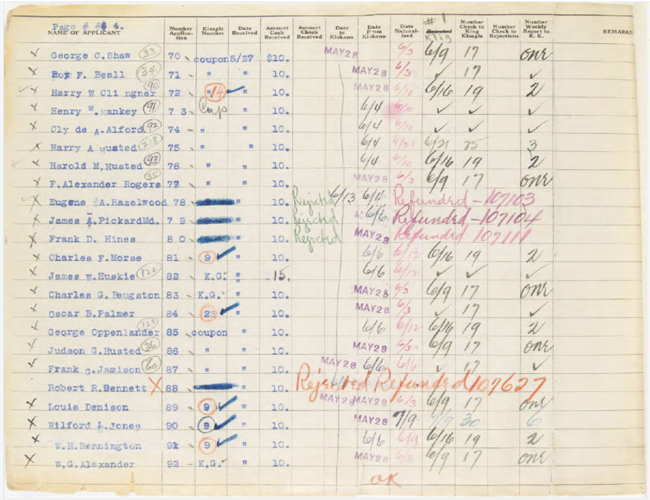 Page # 4.
NAME OF APPLICANT Number Application Klongle Number Date Received Amount Cash Received Amount Check Received Date to Kldxom Date From Kldxom Date Naturalized #1 Rejected K10 Number Check to King Kleagle Number Check to Rejections Number Weekly Report to K. REMARKS
George C. Shaw 23 70 coupon 5/27 $10. MAY 28 6/3 6/9 17 one
Roy F. Beall 71 " " 10. MAY 28 6/3 ✓ 17 ✓
Harry W Clingner 90 72 14 " 10. MAY 28 6/10 6/16 19 2
Henry W. wankey 91 7 3 Coup " 10. 6/4 6/10 ✓ ✓ ✓
Clyde A. Alford 92 74 - " " 10. 6/4 6/10 ✓ ✓ ✓
Harry A Husted 75 " " 10. 6/4 6/21 3
Harold M, Husted 93 78 " " 10. 6/4 6/10 6/16 19 2
F. Alexander Rogers 77 " " 10. MAY 28 6/3 6/9 17 one
Eugene A. Hazelwood 78 " 10. Rejected 6/13 Refunded - 107103
James A. Pickard Md. 7 9 " 10. Rejected 6/6 Refunded - 107104
Frank D. Hines 8 0 " 10. Rejected MAY 28 Refunded 107111
Charles F. Morse 81 9 " 10. 6/6 6/12 6/16 19 2
James W. Huskie 122 82 K.G. " 15. 6/6 6/12 ✓ ✓ ✓
Charles G. Peugston 83 - K.G. " 10. MAY 28 6/3 6/9 17 one
Oscar B. Palmer 84 23 " 10. MAY 28 6/3 ✓ 17 ✓
George Oppenlander 123 85 coupon " 10. 6/6 6/12 6/16 19 2
Judson G. Husted 26 86 " " 10. MAY 28 6/3 6/9 17 one
Frank g. Jamison 60 87 " " 10. MAY 28 6/6 6/6 ✓ 17 ✓
Robert R. Bennett X 88 " 10. Rejected Refunded 107627
Louis Denison 89 9 " 10. MAY 28 MAY 28 6/3 6/9 17 one
Wilford L. Jones 90 9 " 10. MAY 28 7/9 7/9 30 6
W. H. Rennington 91 9 " 10. 6/6 6/9 6/16 19 2
W. G. Alexander 92 - K.G. " 10. MAY 28 6/2 6/9 17 one
OK